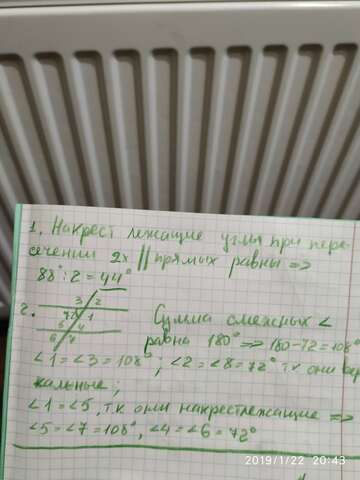 1. Накрест лежащие углы при пере
сечении 2х || прямых равны =>
88° : 2 = 44°
2.
3 2
72° 1
5 4
6 7
Сумма смежных ∠
равна 180° => 180-72=108°
∠1=∠3=108°; ∠2=∠8=72° тк они вер
кальные;
∠1=∠5, т.к они накрестлежащие =>
∠5=∠7=108°, ∠4=∠6=72°
2019/1/22 20:43